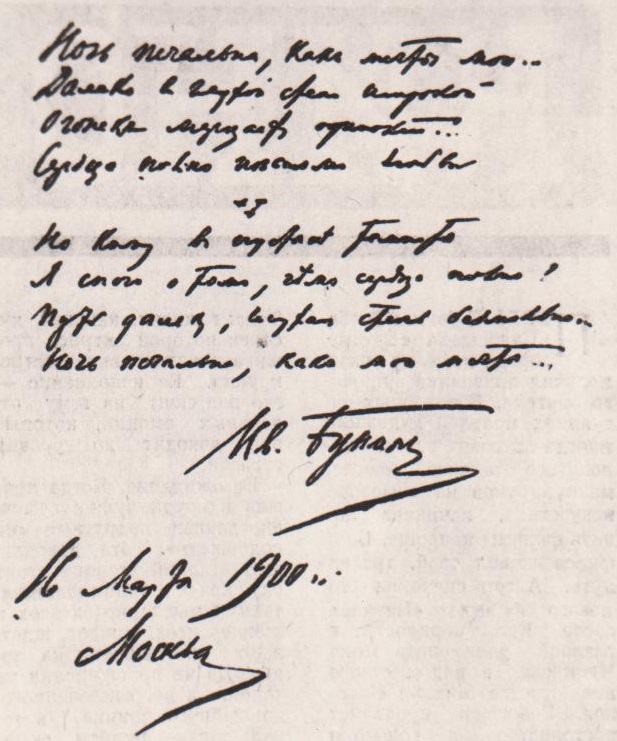 Ночь печальна, какъ мечты мои...
Далеко в глухой степи широкой
Огонекъ мерцаетъ одинокій...
Сердце полно любви
Но кому въ
Я спою о томъ, чѣмъ сердце полно?
Путь далекъ, глухая степь безмолвна..
Ночь печальна, какъ мои мечты...
Ив. Бунинъ
16 Марта 1900 г.
Москва